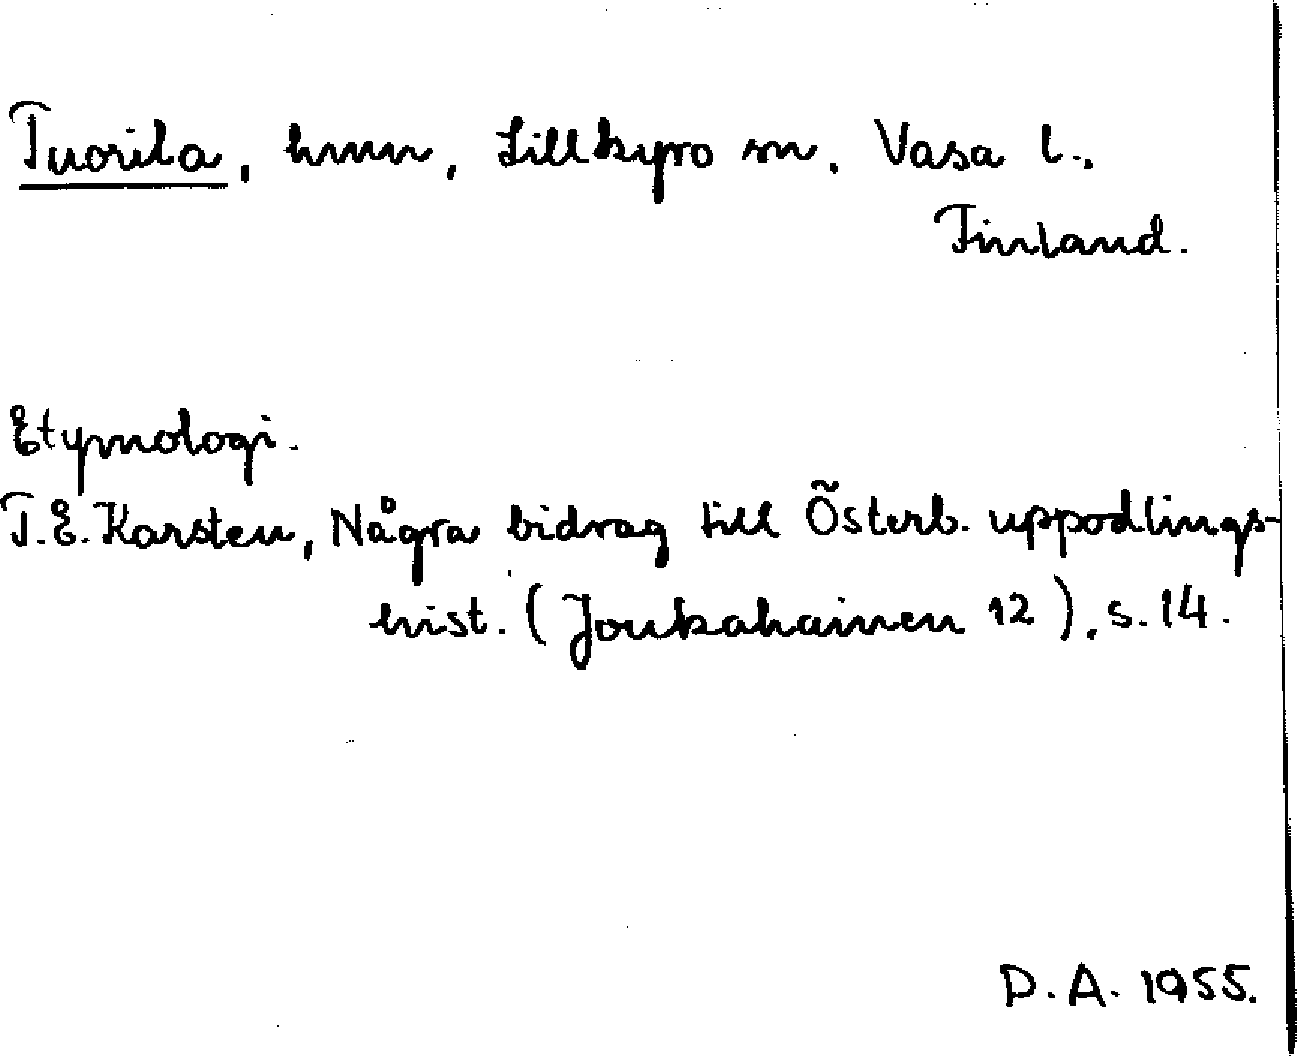 Tuorila, hmn, Lillkyro sn, Vasa l.,
Finland.
Etymologi.
T.E. Karsten, Några bidrag till Österb. uppodlings-
hist. (Joukahainen 12), s. 14.
D.A. 1955.